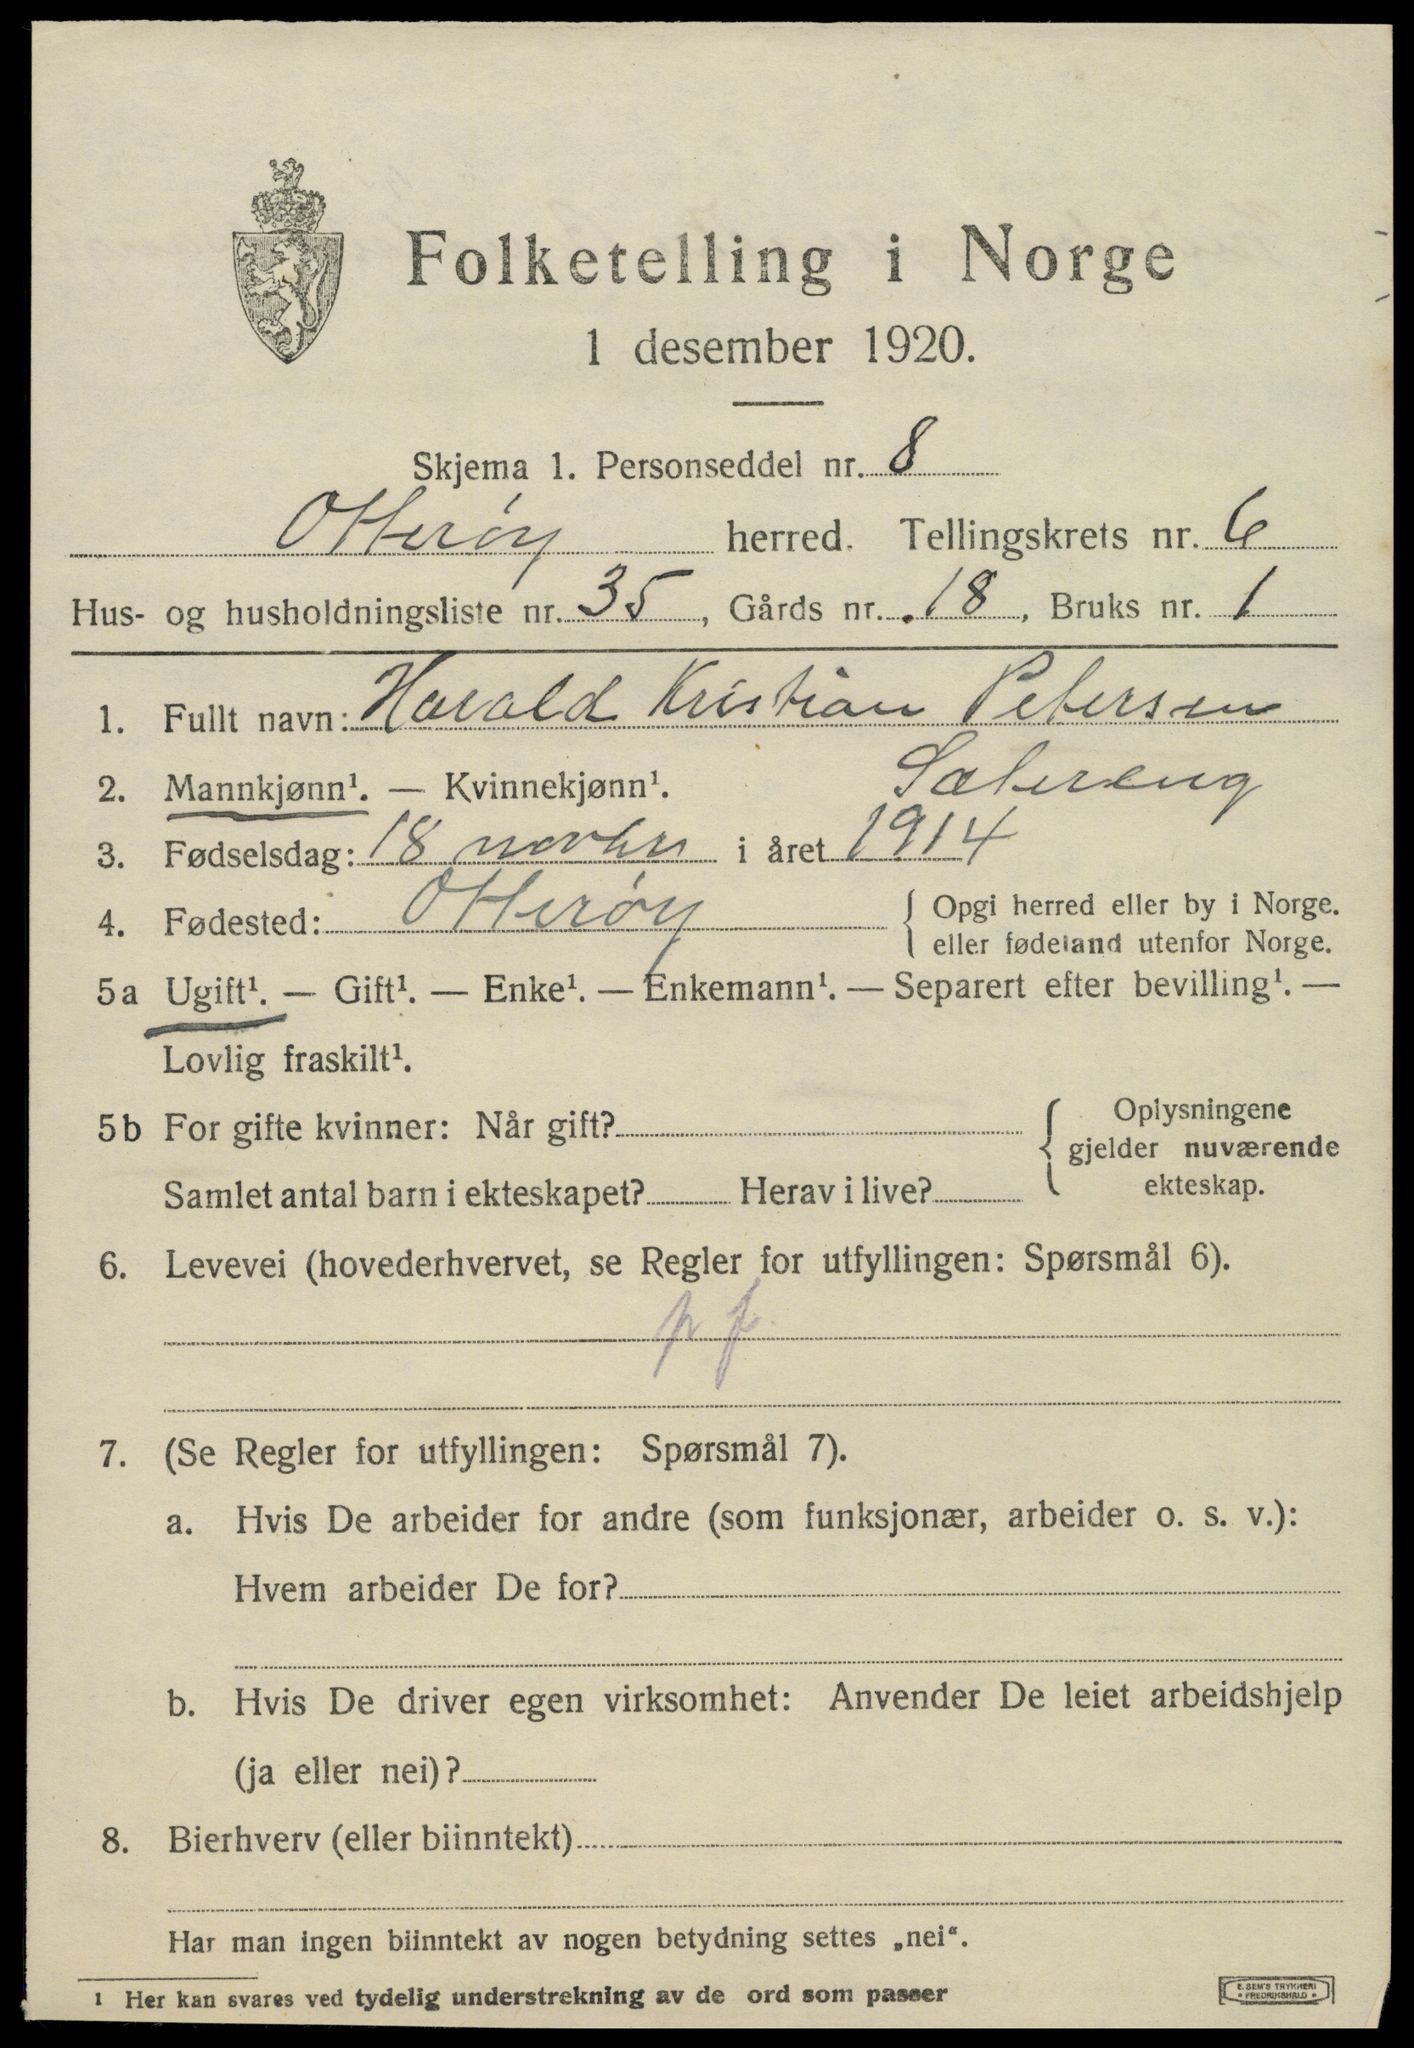 Folketelling i Norge
1 desember 1920.
Skjema 1. Personseddel nr. 8
Otterøy herred. Tellingskrets nr. 6
Hus- og husholdningsliste nr. 35, Gårds nr. 18, Bruks nr. 1
1. Fullt navn: Harald Kristian Petersen
Sætereng
2. Mannkjønn¹. — Kvinnekjønn¹.
3. Fødselsdag: 18 novbr i året 1914
4. Fødested: Otterøy { Opgi herred eller by i Norge.
eller fødeland utenfor Norge.
5a Ugift¹. — Gift¹. — Enke¹. — Enkemann¹. — Separert efter bevilling¹. —
Lovlig fraskilt¹.
5b For gifte kvinner: Når gift? { Oplysningene
gjelder nuværende
ekteskap.
Samlet antal barn i ekteskapet? Herav i live?
6. Levevei (hovederhvervet, se Regler for utfyllingen: Spørsmål 6).
p f
7. (Se Regler for utfyllingen: Spørsmål 7).
a. Hvis De arbeider for andre (som funksjonær, arbeider o. s. v.):
Hvem arbeider De for?
b. Hvis De driver egen virksomhet: Anvender De leiet arbeidshjelp
(ja eller nei)?
8. Bierhverv (eller biinntekt)
Har man ingen biinntekt av nogen betydning settes „nei“.
1 Her kan svares ved tydelig understrekning av de ord som passer
E. SEM'S TRYKKERI
FREDRIKSHALD